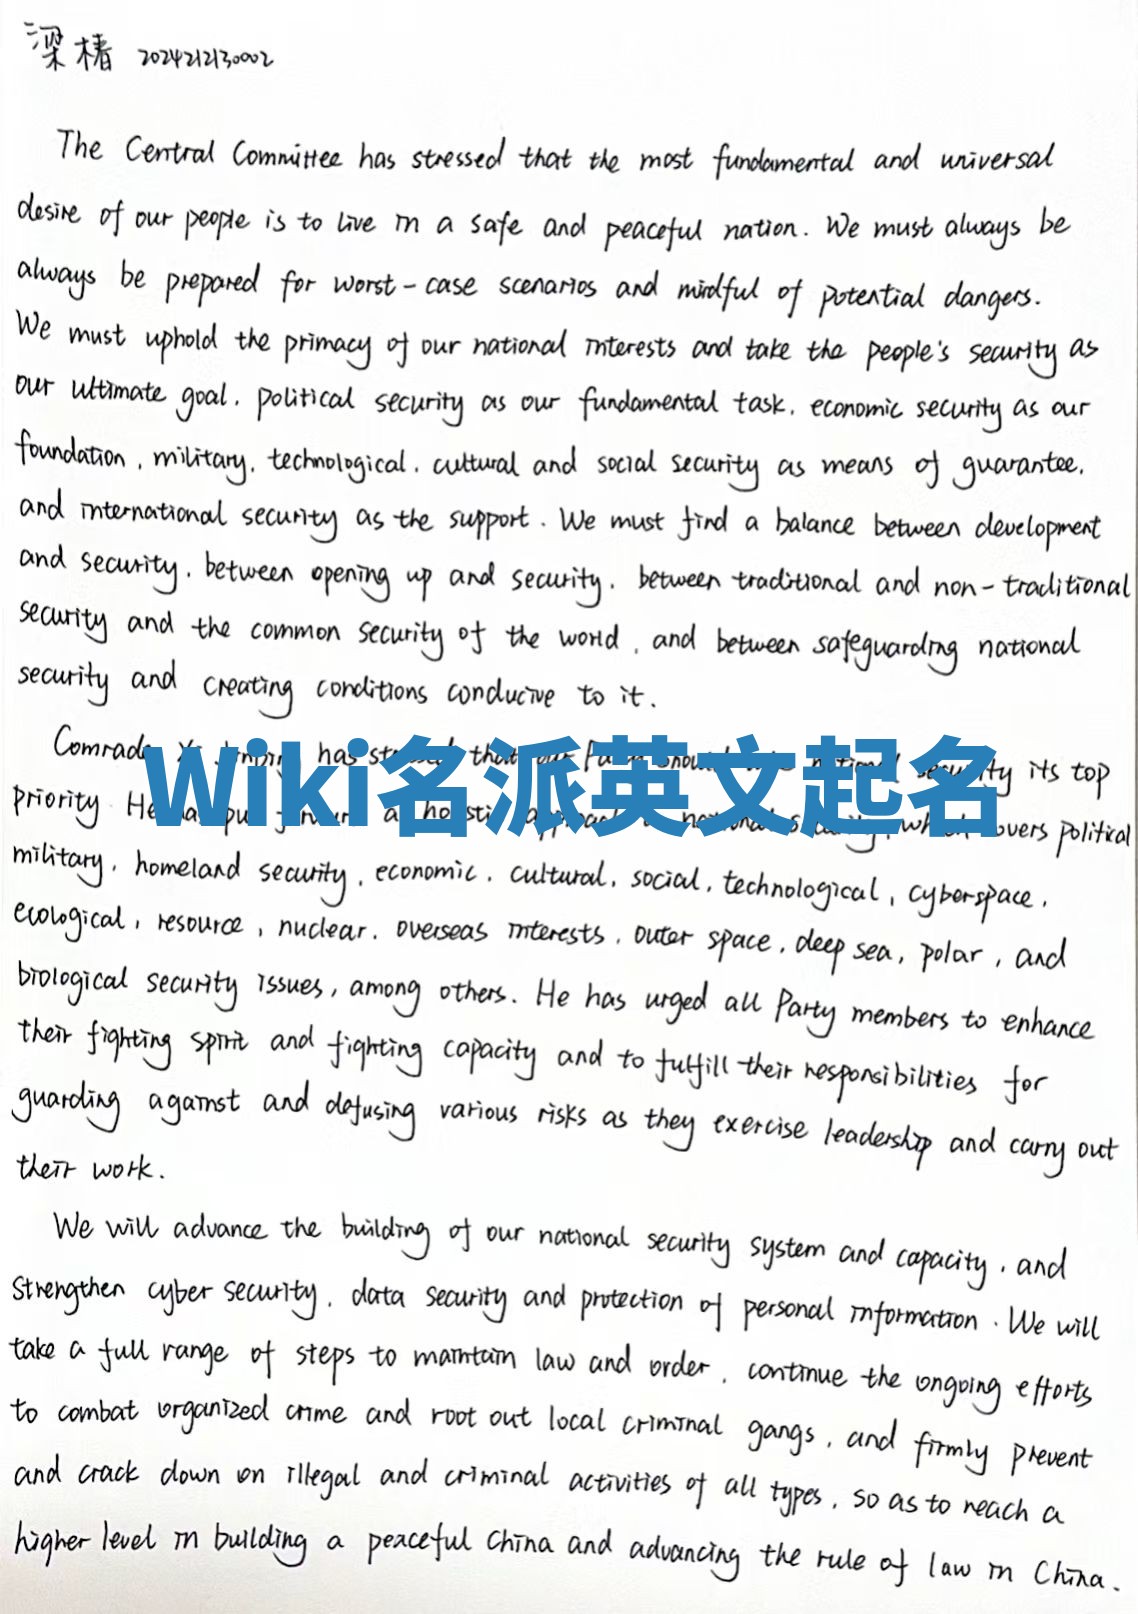 梁椿 2024212130002
The Central Committee has stressed that the most fundamental and universal
desire of our people is to live in a safe and peaceful nation. We must always be
always be prepared for worst-case scenarios and mindful of potential dangers.
We must uphold the primacy of our national interests and take the people's security as
our ultimate goal, political security as our fundamental task, economic security as our
foundation, military, technological, cultural and social security as means of guarantee,
and international security as the support. We must find a balance between development
and security, between opening up and security, between traditional and non-traditional
security and the common security of the world, and between safeguarding national
security and creating conditions conducive to it.
Comrade has that its top
Wiki名派英文起名
priority. political
military, homeland security, economic, cultural, social, technological, cyberspace,
ecological, resource, nuclear, overseas interests, outer space, deep sea, polar, and
biological security issues, among others. He has urged all Party members to enhance
their fighting spirit and fighting capacity and to fulfill their responsibilities for
guarding against and defusing various risks as they exercise leadership and carry out
their work.
We will advance the building of our national security system and capacity, and
strengthen cyber security, data security and protection of personal information. We will
take a full range of steps to maintain law and order, continue the ongoing efforts
to combat organized crime and root out local criminal gangs, and firmly prevent
and crack down on illegal and criminal activities of all types, so as to reach a
higher level in building a peaceful China and advancing the rule of law in China.